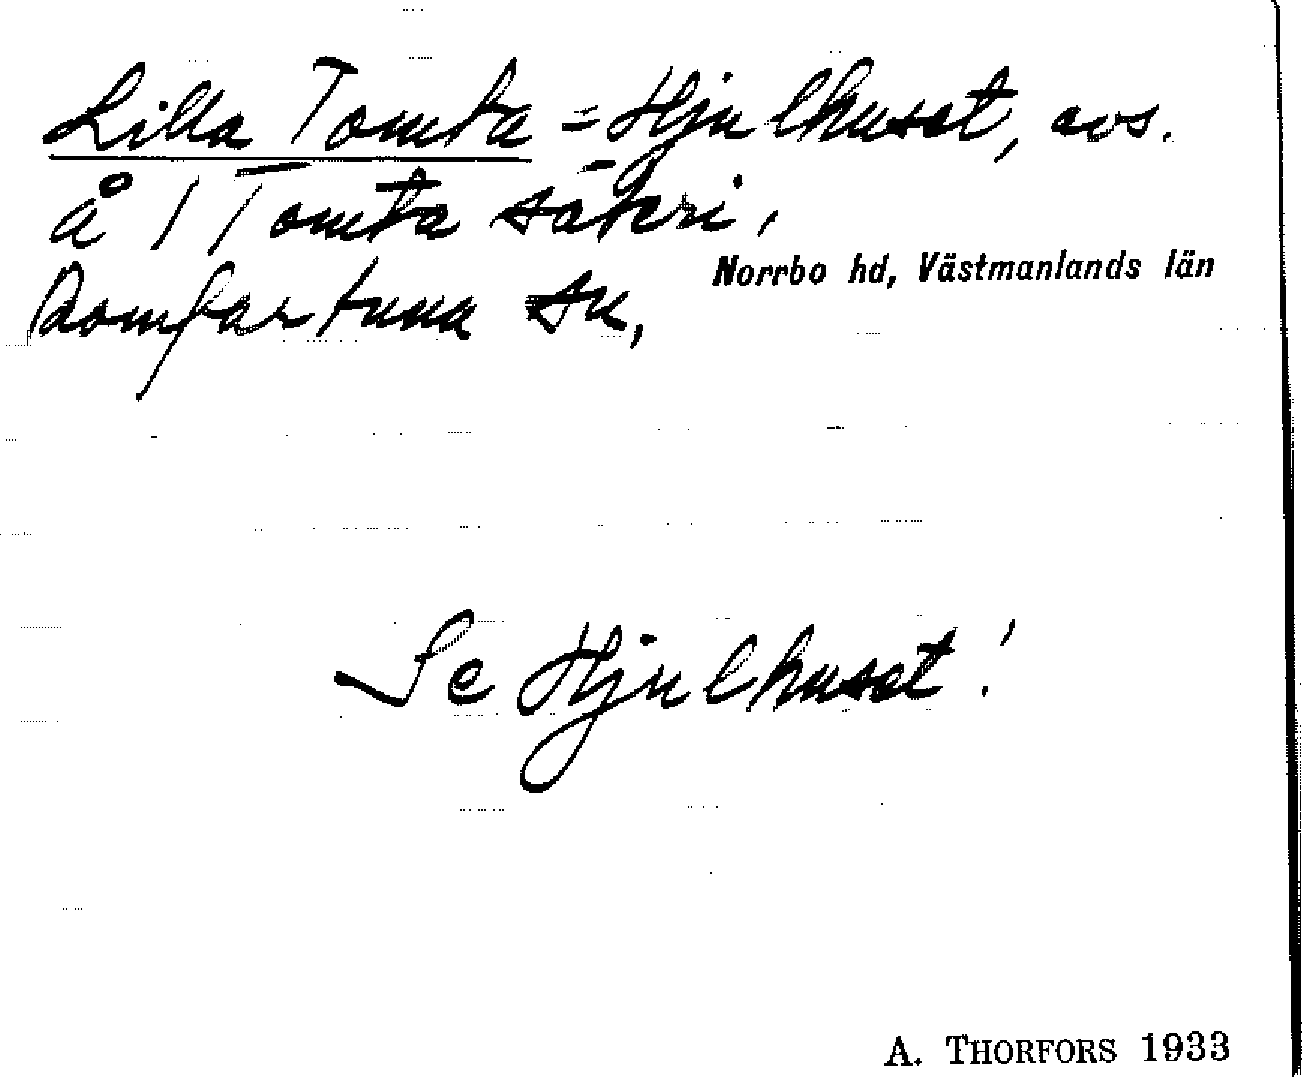 Lilla Tomta = Hjulhuset, avs.
å 1 Tomta säteri,
Romfartuna sn,
Norrbo hd, Västmanlands län
Se Hjulhuset!
A. THORFORS 1933